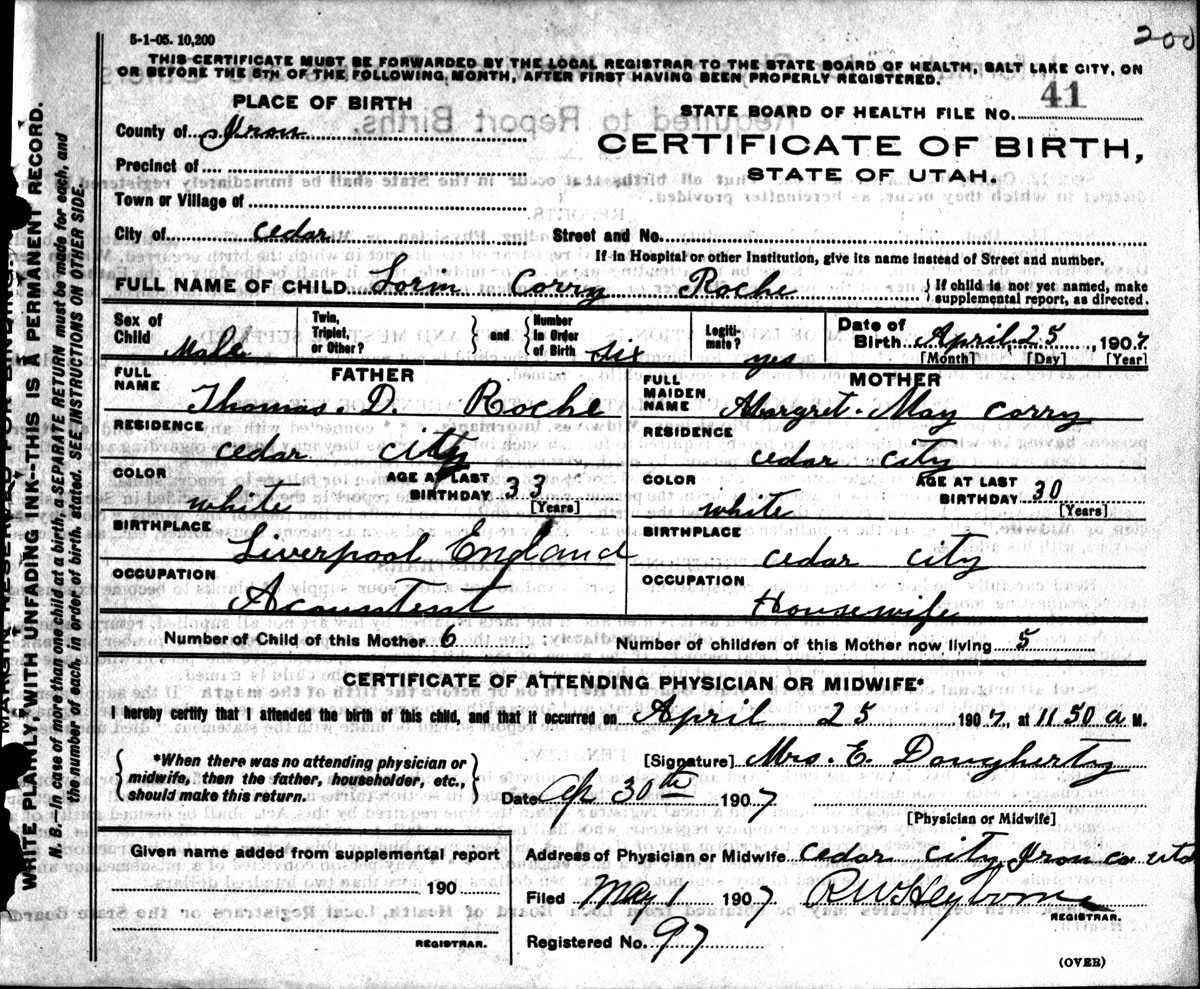 5-1-05. 10,200
200
THIS CERTIFICATE MUST BE FORWARDED BY THE LOCAL REGISTRAR TO THE STATE BOARD OF HEALTH, SALT LAKE CITY, ON
OR BEFORE THE 5TH OF THE FOLLOWING MONTH, AFTER FIRST HAVING BEEN PROPERLY REGISTERED.
PLACE OF BIRTH
STATE BOARD OF HEALTH FILE NO. 41
County of Iron
CERTIFICATE OF BIRTH,
STATE OF UTAH.
Precinct of
Town or Village of
City of cedar Street and No.
If in Hospital or other Institution, give its name instead of Street and number.
FULL NAME OF CHILD Lorin Corry Roche { If child is not yet named, make
supplemental report, as directed.
Sex of Child Male Twin, Triplet, or Other? } and { Number In Order of Birth six Legiti-mate? yes Date of Birth April 25, 1907
[Month] [Day] [Year]
FATHER
FULL NAME Thomas. D. Roche
RESIDENCE cedar city
COLOR white AGE AT LAST BIRTHDAY 33
[Years]
BIRTHPLACE Liverpool England
OCCUPATION Acountent
MOTHER
FULL MAIDEN NAME Margret. May Corry
RESIDENCE cedar city
COLOR white AGE AT LAST BIRTHDAY 30
[Years]
BIRTHPLACE cedar city
OCCUPATION Housewife
Number of Child of this Mother 6 Number of children of this Mother now living 5
CERTIFICATE OF ATTENDING PHYSICIAN OR MIDWIFE*
I hereby certify that I attended the birth of this child, and that it occurred on April 25 1907, at 11 50 a M.
{ *When there was no attending physician or
midwife, then the father, householder, etc.,
should make this return. }
[Signature] Mrs. E. Dougherty
Date Ap 30th 1907
[Physician or Midwife]
Given name added from supplemental report
190
REGISTRAR.
Address of Physician or Midwife cedar city Iron co utah
Filed May 1 1907. R W Heyborne
REGISTRAR.
Registered No. 97
(OVER)
MARGIN RESERVED FOR BINDING.
WRITE PLAINLY, WITH UNFADING INK--THIS IS A PERMANENT RECORD.
N. B.—In case of more than one child at a birth, a SEPARATE RETURN must be made for each, and
the number of each, in order of birth, stated. SEE INSTRUCTIONS ON OTHER SIDE.